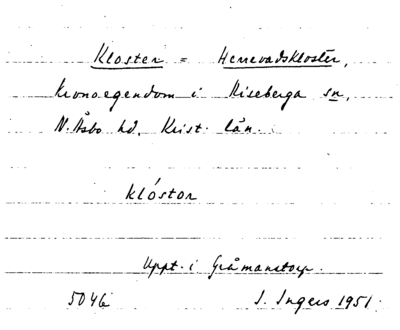 Kloster = Herrevadskloster,
Kronoegendom i Riseberga sn,
N. Åsbo hd. Krist. län.
klóstor
Uppt. i Gråmanstorp.
5046 I. Ingers 1951.